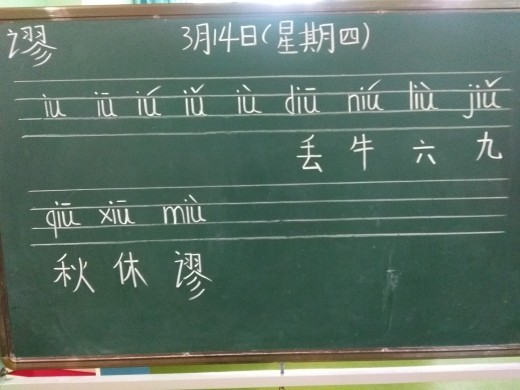 谬
3月14日(星期四)
iu iū iú iǔ iù diū niú liù jiǔ
丢 牛 六 九
qiū xiū miù
秋 休 谬